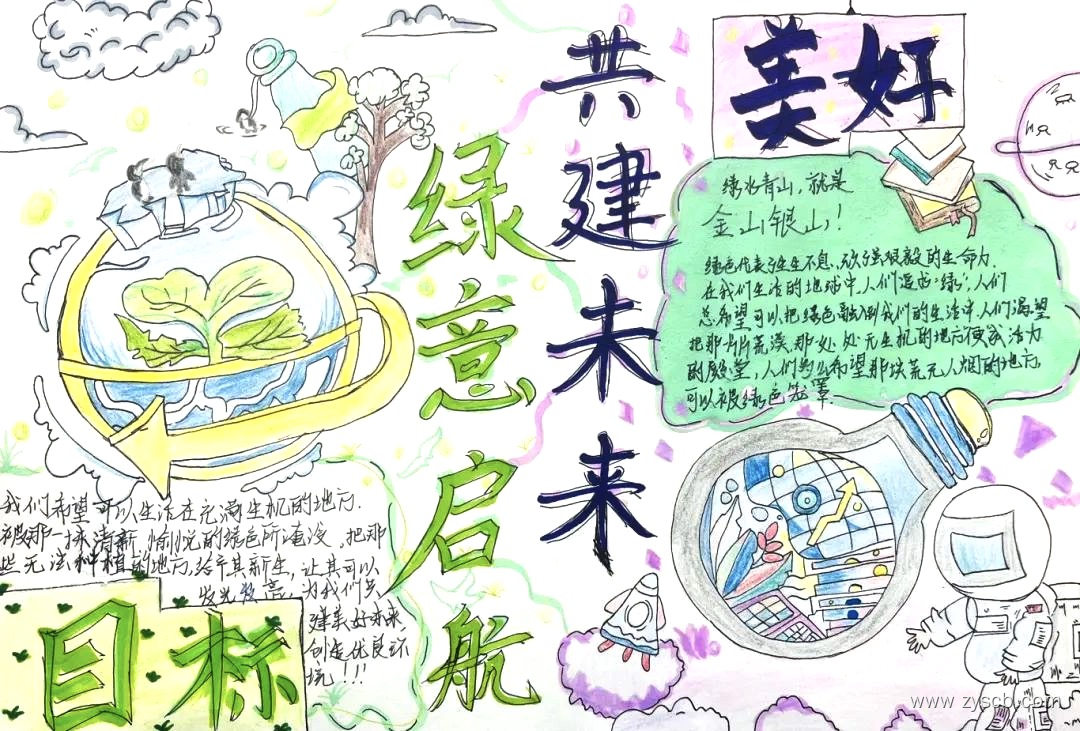 绿意启航
共建未来
美好
绿水青山，就是
金山银山！
绿色代表着生生不息、顽强坚毅的生命力，
在我们生活的地球中，人们遥望“绿”，人们
总希望可以把绿色融入到我们的生活中，人们渴望
把那片片荒漠，那处处无生机的地方便成活力
的殿堂，人们多么希望那块荒无人烟的地方
可以被绿色笼罩.
我们希望可以生活在充满生机的地方.
被那一抹清新、愉悦的绿色所淹没，把那
些无法种植的地方，给予其新生，让其可以
发光发亮，为我们共
建美好未来
创造优良环
境！！！
目标
www.zyscb.com